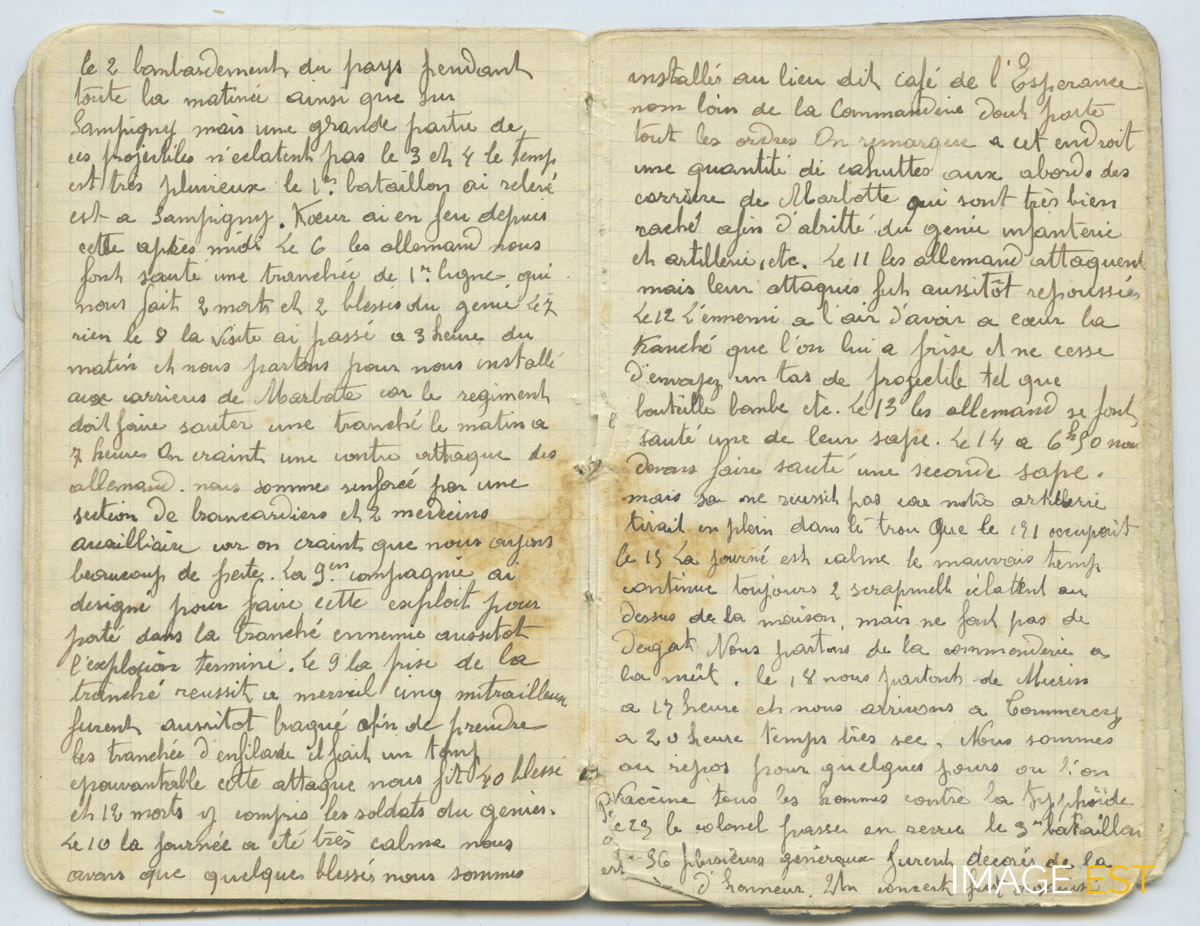 le 2 bombardement du pays pendant
toute la matinée ainsi que sur
Sampigny mais une grande partie de
ces projectiles n'eclatent pas le 3 et 4 le temp
est très pluvieux le 1er bataillon ai relevé
est a Sampigny. Kœur ai en feu depuis
cette après midi Le 6 les allemand nous
font sauté une tranchée de 1re ligne qui
nous fait 2 morts et 2 blessés du genie Le 7
rien le 8 la visite ai passé a 3 heure du
matin et nous partons pour nous installé
aux carrieres de Marbote car le regiment
doit faire sauter une tranché le matin a
7 heures On craint une contre attaque des
allemand. nous somme renforcé par une
section de brancardiers et 2 médecins
auxilliaire car on craint que nous ayons
beaucoup de perte. La 9em compagnie ai
designé pour faire cette exploit pour
porté dans la tranché ennemie aussitot
l'explosion terminé. Le 9 la prise de la
tranché reussit a merveil cinq mitrailleuse
furent aussitot braqué afin de prendre
les tranchée d'enfilade il fait un temp
epouvantable cette attaque nous fit 40 blessé
et 12 morts y compris les soldats du genies.
Le 10 la journée a été très calme nous
avons que quelques blessés nous sommes
installés au lieu dit café de l'Esperance
nom loin de la Commanderie dont porte
tout les ordres On remarque a cet endroit
une quantité de cahuttes aux abords des
carrière de Marbotte qui sont très bien
caché afin d'abritté du genie infanterie
et artillerie, etc. Le 11 les allemand attaquent
mais leur attaques fut aussitôt repoussées
Le 12 L'ennemi a l'air d'avoir a cœur la
tranché que l'on lui a prise et ne cesse
d'envoyez un tas de projectile tel que
bouteille bombe etc. Le 13 les allemand se font
sauté une de leur sape. Le 14 a 6h30 nou
devons faire sauté une seconde sape.
mais sa ne reussit pas car notre artillerie
tirait en plein dans le trou que le 171 occupait
le 15 La journé est calme le mauvais temp
continue toujours 2 scrapnell éclattent au
dessus de la maison, mais ne font pas de
degat Nous partons de la commenderie a
la nuit. le 18 nous partont de
a 17 heure et nous arrivons a Commercy
a 20 heure temps très sec. Nous sommes
au repos pour quelques jours ou l'on
vaccine tous les hommes contre la typhoïde
le 29 le colonel passe en revue le 3me bataillon
36 plusieurs généraux furent décorés de la
d'honneur. Un concert fut
IMAGE EST